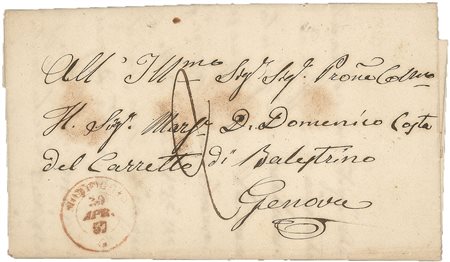 All' Ill.mo Sig.r Sig.r Prone Col.mo
Il Sig.r Mar.se D. Domenico Costa
del Carretto di Balestrino
Genova
29
APR.